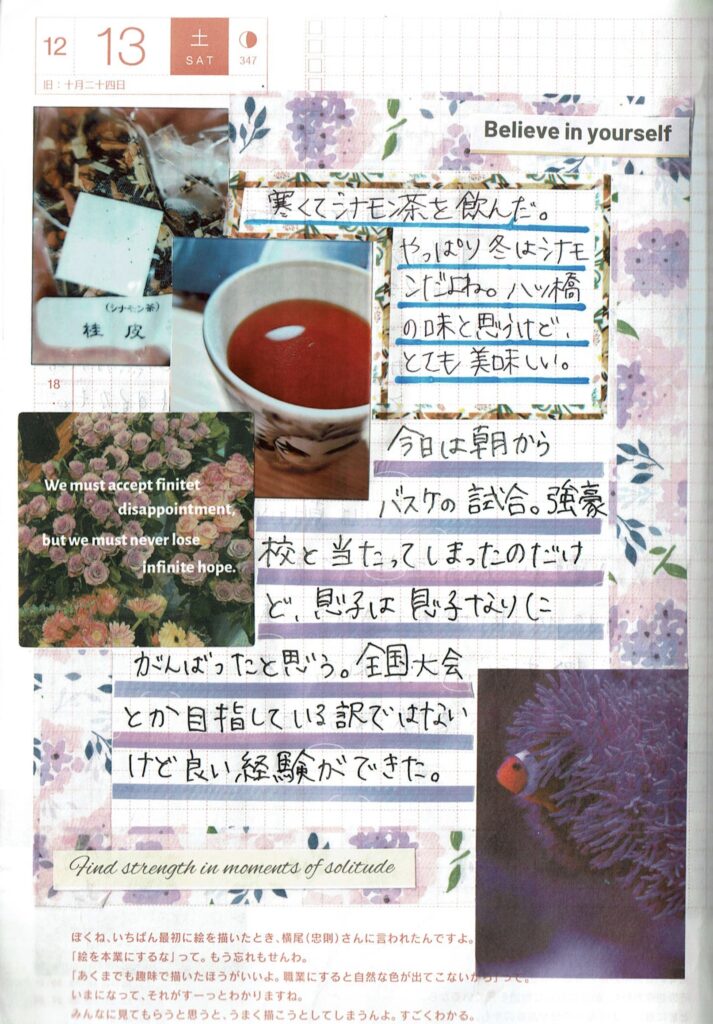 12
13
土
SAT
347
旧：十月二十四日
Believe in yourself
寒くてシナモン茶を飲んだ。
やっぱり冬はシナモ
ンだよね。八ッ橋
の味と思うけど、
とても美味しい。
(シナモン茶)
桂皮
18
We must accept finitet
disappointment,
but we must never lose
infinite hope.
今日は朝から
バスケの試合。強豪
校と当たってしまったのだけ
ど、息子は息子なりに
がんばったと思う。全国大会
とか目指している訳ではない
けど良い経験ができた。
Find strength in moments of solitude
ぼくね、いちばん最初に絵を描いたとき、横尾（忠則）さんに言われたんですよ。
「絵を本業にするな」って。もう忘れもせんわ。
「あくまでも趣味で描いたほうがいいよ。職業にすると自然な色が出てこないから」って。
いまになって、それがすーっとわかりますね。
みんなに見てもらうと思うと、うまく描こうとしてしまうんよ。すごくわかる。